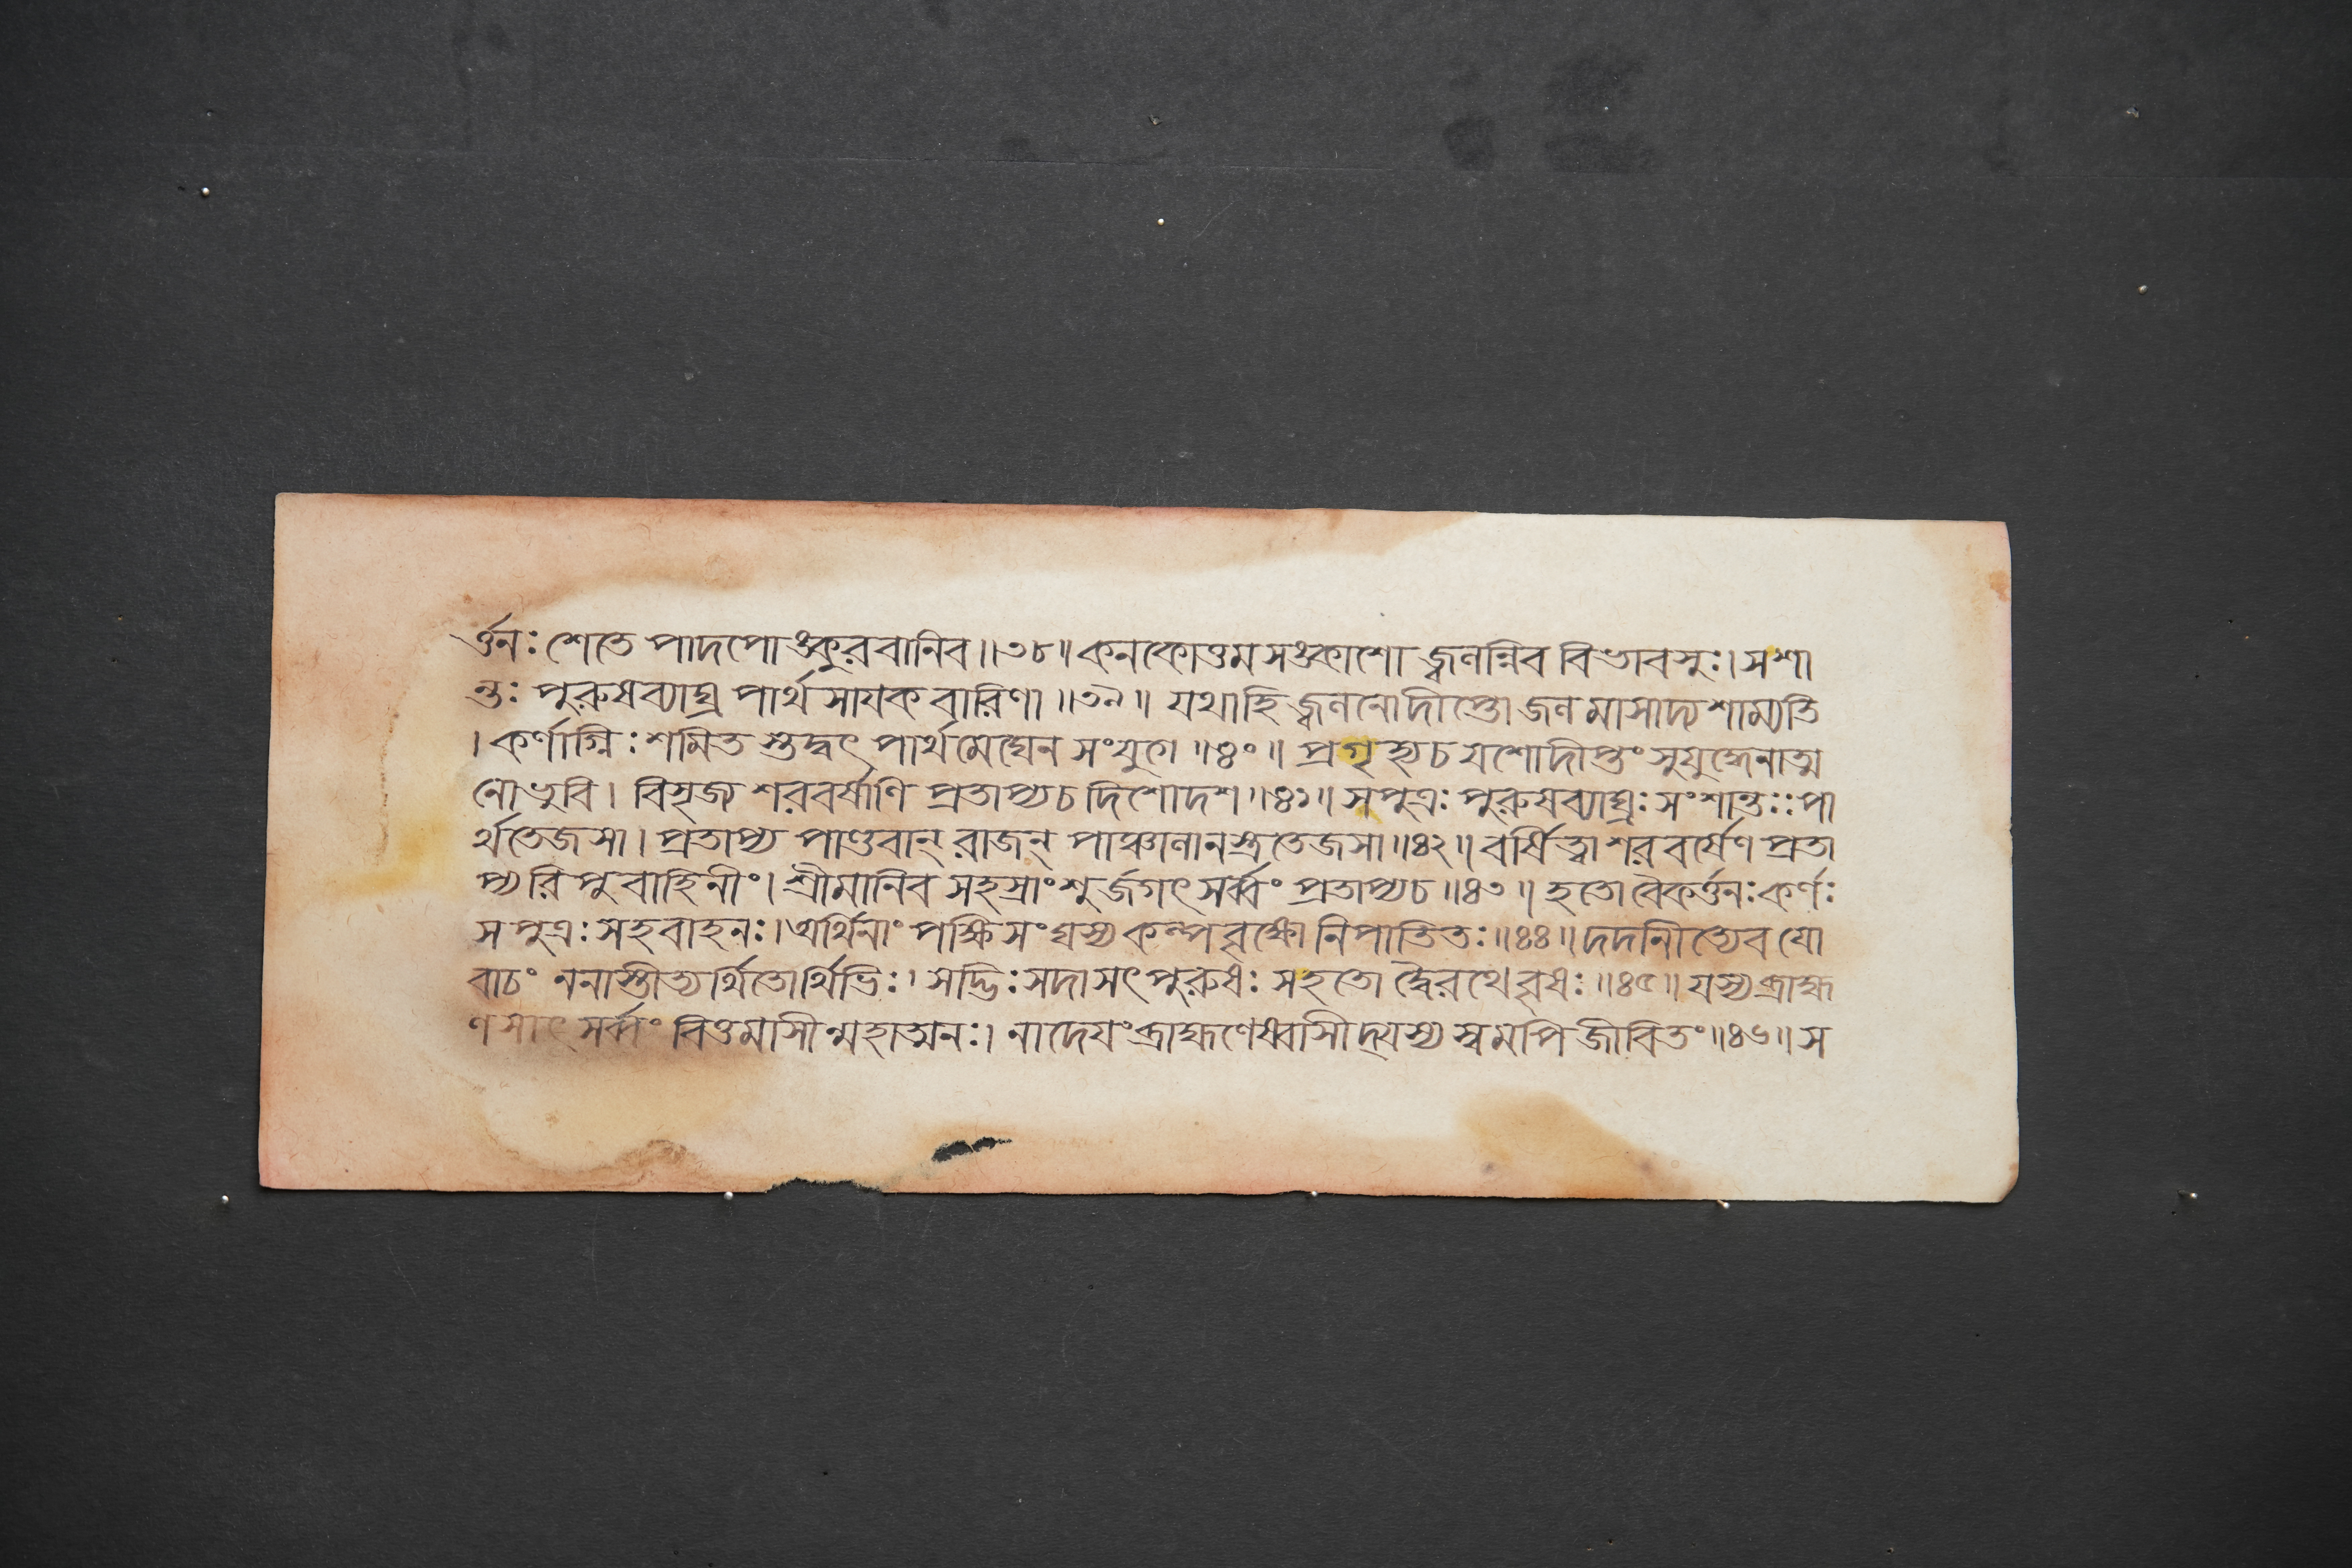 র্ত্তনঃ শেতে পাদপোঙ্কুরবানিব॥৩৮॥ কনকোত্তমসঙ্কাশো জ্বলন্নিব বিভাবসুঃ। সশা
ন্তঃ পুরুষব্যাঘ্র পার্থ সায়কবারিণা॥৩৯॥ যথাহি জ্বলনোদীপ্তো জলমাসাদ্য শাম্যতি
। কর্ণাগ্নিঃ শমিত স্তদ্বৎ পার্থমেঘেন সংযুগে॥৪০॥ প্রগৃহ্যচ যশোদীপ্তং সুযুদ্ধেনাত্ম
নোভুবি। বিসৃজ্য শরবর্ষাণি প্রতাপ্যচ দিশোদশ॥৪১॥ সপুত্রঃ পুরুষব্যাঘ্রঃ সংশান্তঃঃ পা
র্থতেজসা। প্রতাপ্য পাণ্ডবান্ রাজন্ পাঞ্চালানস্ত্রতেজসা॥৪২॥ বর্ষিত্বা শরবর্ষেণ প্রতা
প্য রিপুবাহিনীং। শ্রীমানিব সহস্রাংশুর্জগৎ সর্ব্বং প্রতাপ্যচ॥৪৩॥ হতো বৈকর্ত্তনঃ কর্ণঃ
সপুত্রঃ সহবাহনঃ। অর্থিনাং পক্ষিসংঘস্য কল্পবৃক্ষো নিপাতিতঃ॥৪৪॥ দদানীত্যেব যো
বাচং ননাস্তীত্যর্থিতোর্থিভিঃ। সদ্ভিঃ সদা সৎপুরুষঃ সহতো দ্বৈরথে বৃষঃ॥৪৫॥ যস্য ব্রাহ্ম
ণসাৎ সর্ব্বং বিত্তমাসীন্মহাত্মনঃ। নাদেয়ং ব্রাহ্মণেষ্বাসীদ্যস্য স্বমপি জীবিতং॥৪৬॥ স